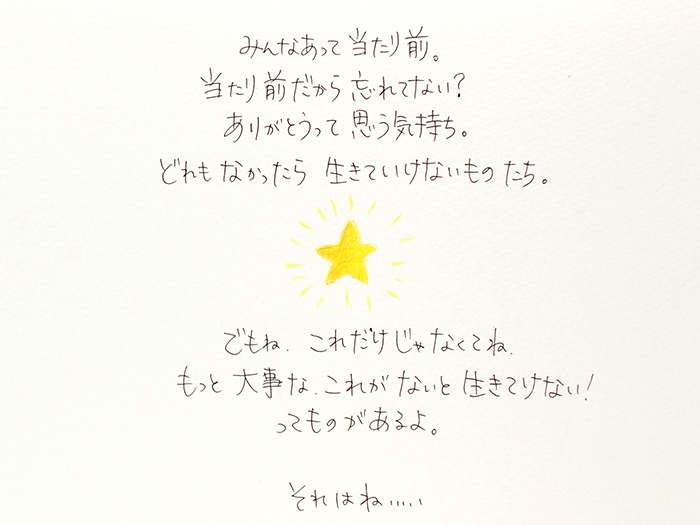 みんなあって当たり前。
当たり前だから忘れてない？
ありがとうって思う気持ち。
どれもなかったら生きていけないものたち。
でもね、これだけじゃなくてね、
もっと大事な、これがないと生きてけない！
ってものがあるよ。
それはね‥‥‥